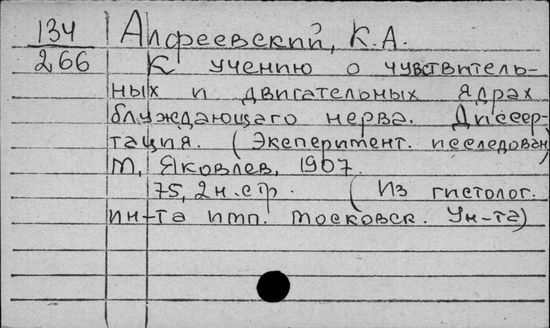 134 Алфеевский, К.А.
266 К учению о чувствитель-
ных и двигательных ядрах
блуждающего нерва. Диссер-
тация. (Эксперимент. исследован)
М, Яковлев, 1907.
75, 2 н. стр. (Из гистолог.
ин-та имп. Московск. Ун-та)